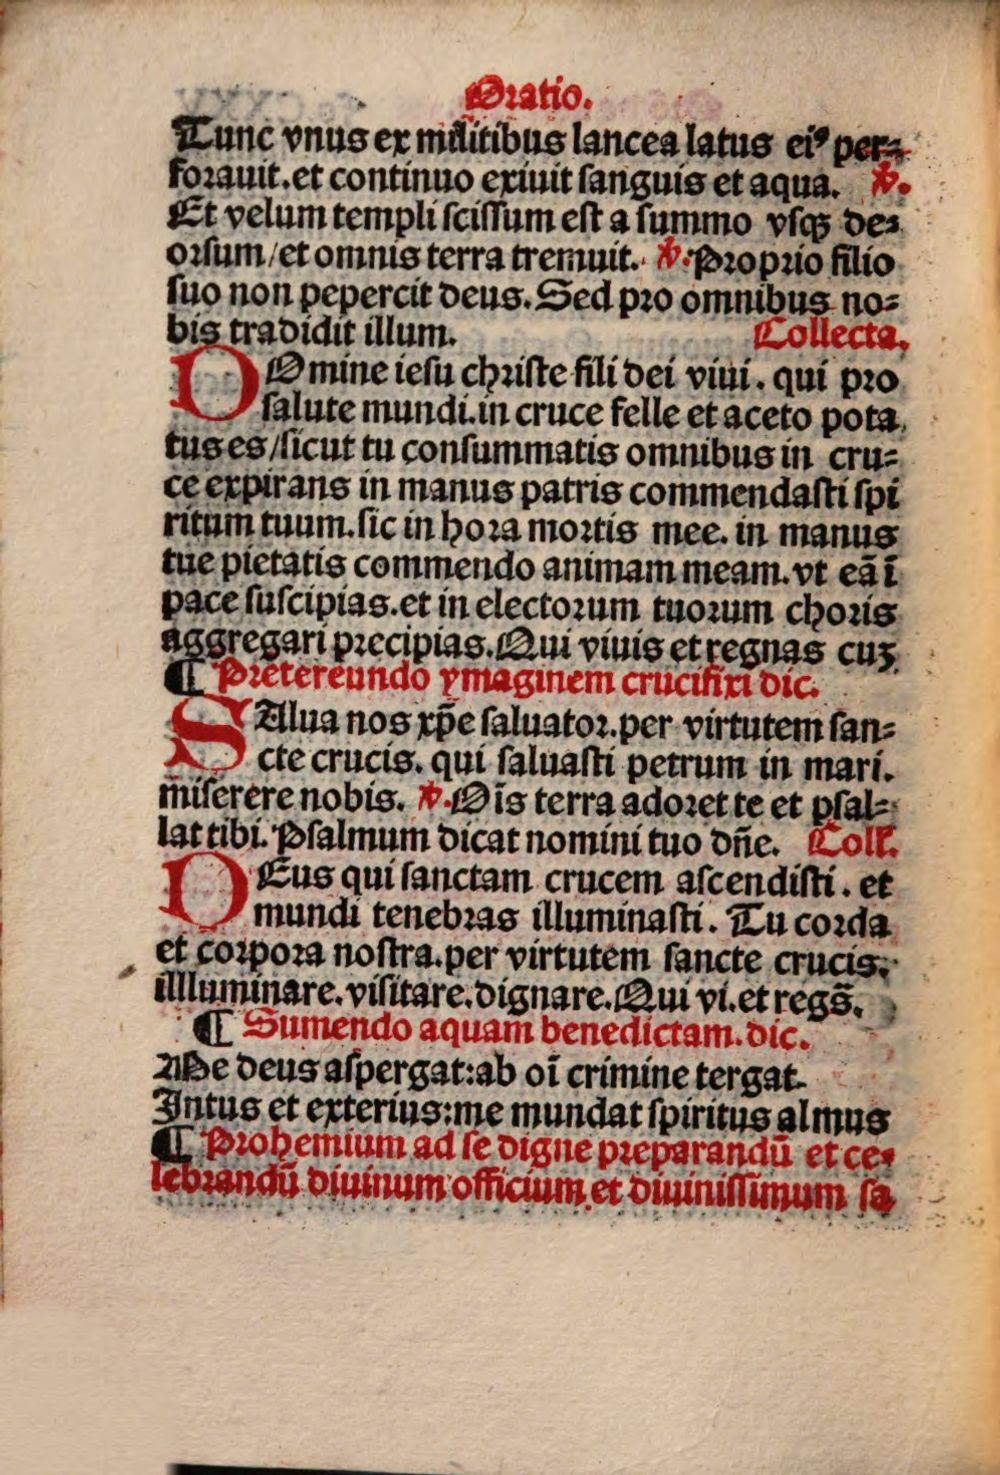 Oratio.
Tunc vnus ex militibus lancea latus ei⁹ per⸗
forauit.et continuo exiuit sanguis et aqua. ℣.
Et velum templi scissum est a summo vsqꝫ de⸗
orsum/et omnis terra tremuit. ℣.Proprio filio
suo non pepercit deus.Sed pro omnibus no⸗
bis tradidit illum. Collecta.
DOmine iesu christe fili dei viui. qui pro
salute mundi.in cruce felle et aceto pota
tus es/sicut tu consummatis omnibus in cru⸗
ce expirans in manus patris commendasti spi
ritum tuum.sic in hora mortis mee. in manus
tue pietatis commendo animam meam.vt eā ī
pace suscipias.et in electorum tuorum choris
aggregari precipias.Qui viuis et regnas cuꝫ
¶ Pretereundo ymaginem crucifixi dic.
SAlua nos xp̄e saluator.per virtutem san⸗
cte crucis. qui saluasti petrum in mari.
miserere nobis. ℣.Oīs terra adoret te et psal⸗
lat tibi.Psalmum dicat nomini tuo dn̄e. Coll.
DEus qui sanctam crucem ascendisti. et
mundi tenebras illuminasti. Tu corda
et corpora nostra.per virtutem sancte crucis.
illluminare.visitare.dignare.Qui vi.et regs̄.
¶ Sumendo aquam benedictam.dic.
Me deus aspergat:ab oī crimine tergat.
Intus et exterius:me mundat spiritus almus
¶ Prohemium ad se digne preparandū et ce⸗
lebrandū diuinum officium et diuinissimum sa